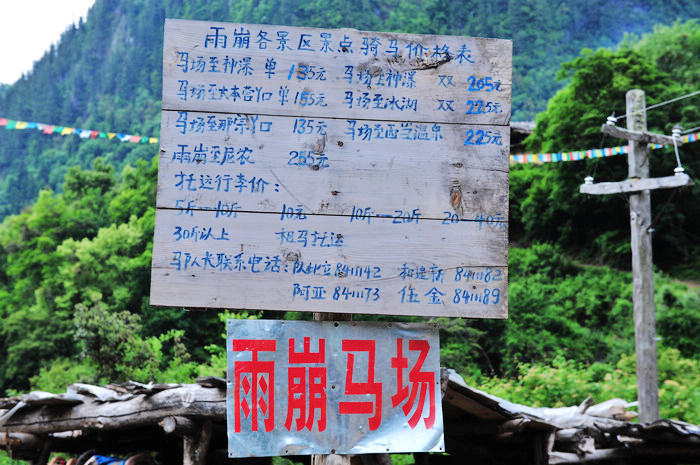 雨崩各景区景点骑马价格表
马场至神瀑 单 135元 马场至神瀑 双 205元
马场至大本营丫口 单 155元 马场至冰湖 双 225元
马场至那宗丫口 135元 马场至西当温泉 225元
雨崩至尼农 255元
托运行李价:
5斤--10斤 10元 10斤--20斤 20-40元
30斤以上 租马托运
马队长联系电话: 8411142 8411182
阿亚 8411173 伍金 8411189
雨崩马场